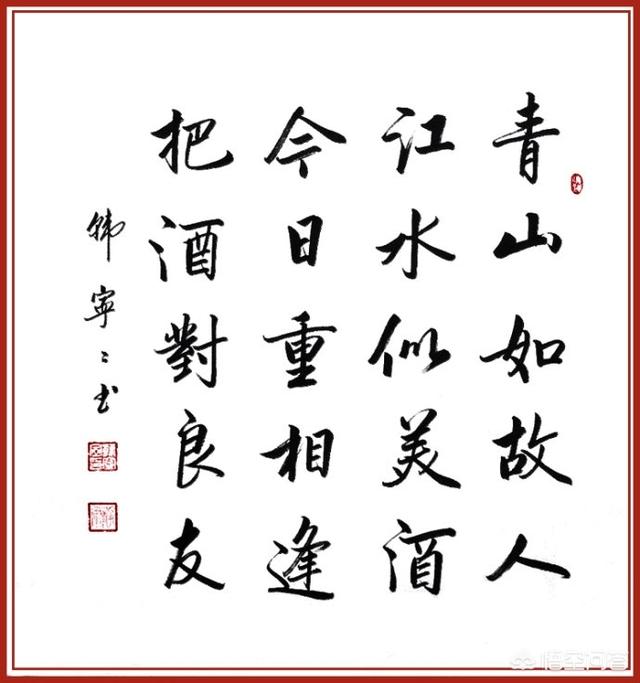 青山如故人
江水似美酒
今日重相逢
把酒對良友
韩寧〻书
悟空问答